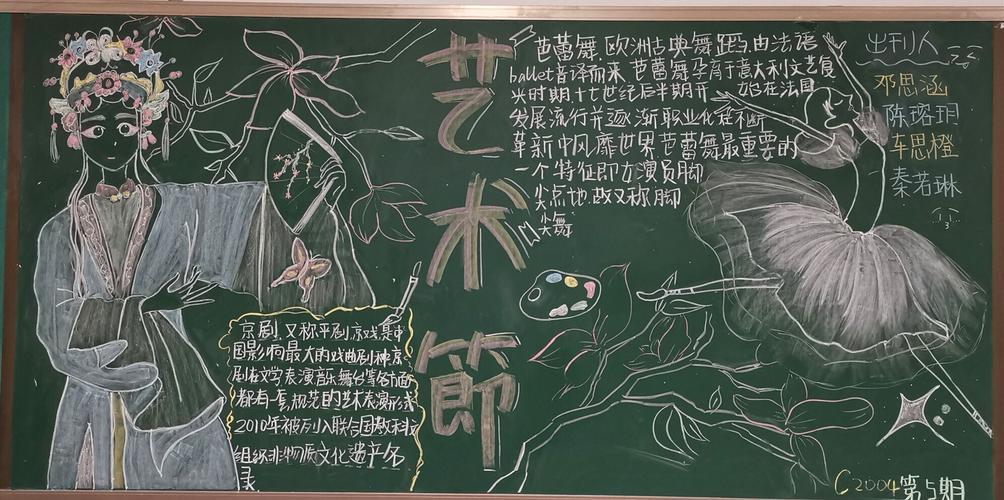 艺术節
芭蕾舞,欧洲古典舞蹈,由法语
ballet音译而来,芭蕾舞孕育于意大利文艺复
兴时期,十七世纪后半期开始在法国
发展流行并逐渐职业化在不断
革新中风靡世界芭蕾舞最重要的
一个特征即为演员脚
尖点地,故又称脚
尖舞
出刊人
邓思涵
陈瑢玥
车思橙
秦若琳
京剧,又称平剧,京戏,是中
国影响最大的戏曲剧种,京
剧在文学,表演,音乐,舞台等各方面
都有一套规范的艺术表演形式
2010年被列入联合国教科文
组织非物质文化遗产名
录
C2004第5期